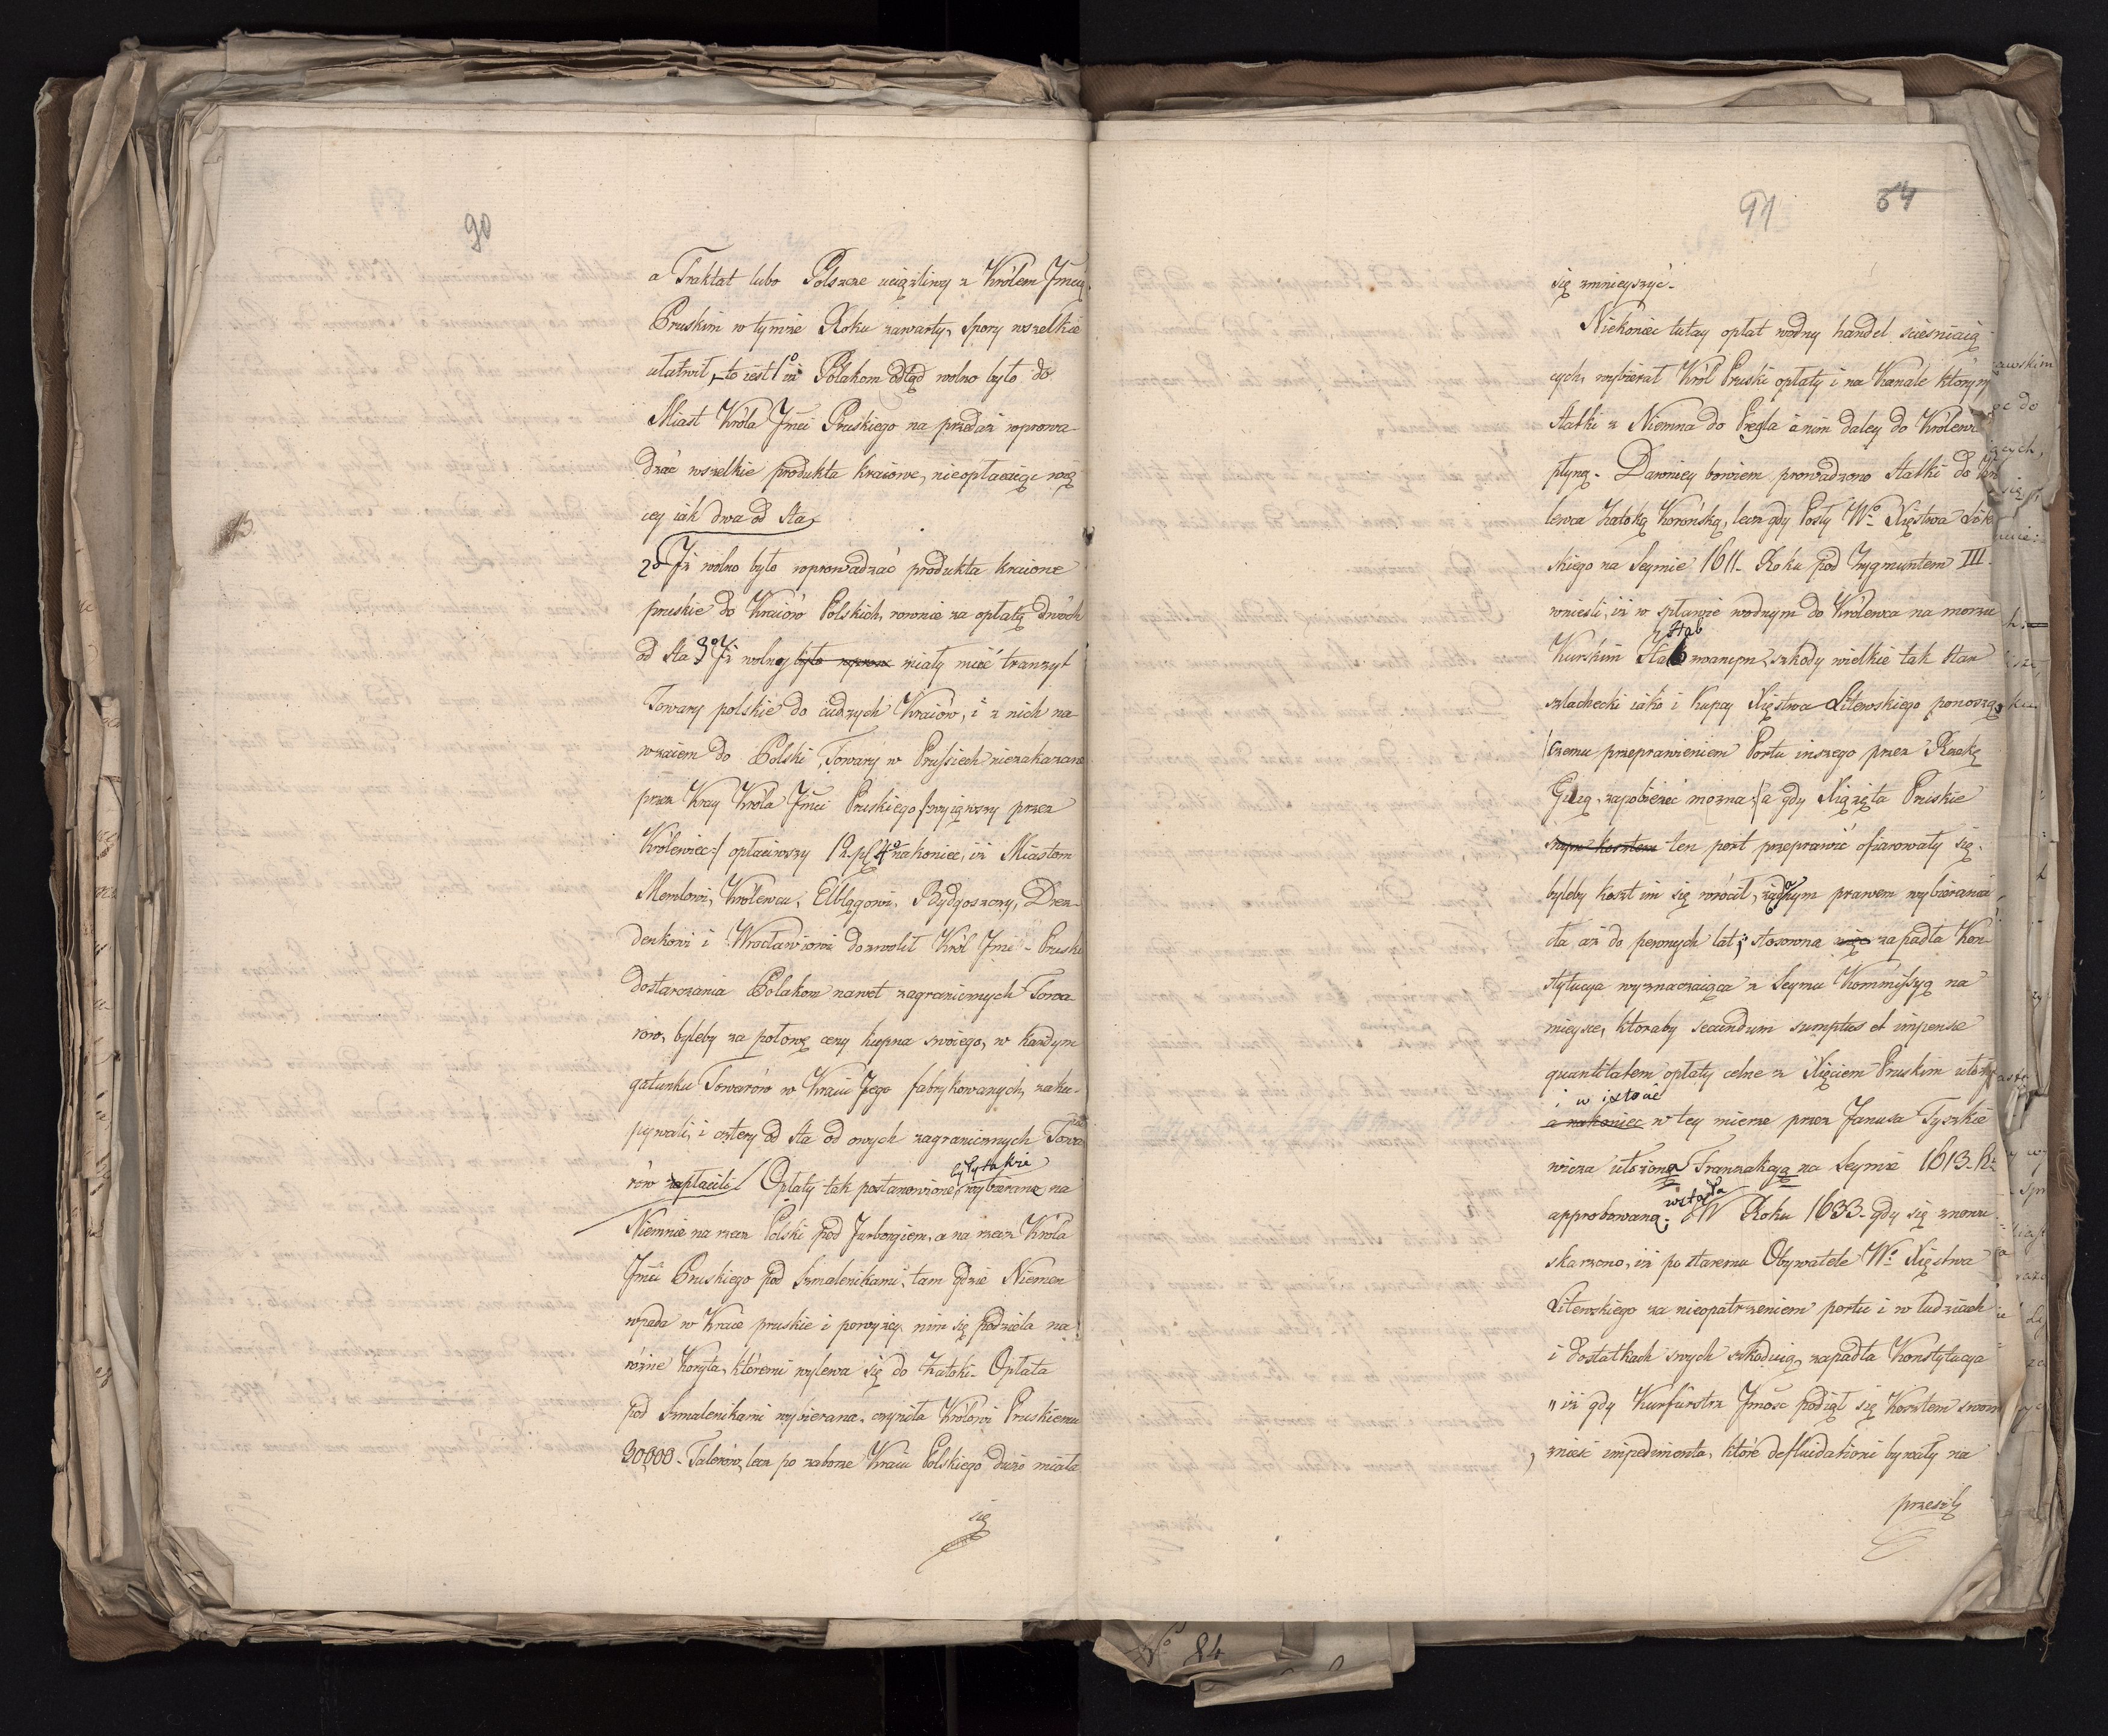 90
a Traktat lubo Polszcze uciążliwy z Królem Jmcią
Pruskim w tymże Roku zawarty, spory wszelkie
ułatwił, to iest 1o iż Polakom odtąd wolno było do
Miast Króla Jmci Pruskiego na przedaż wprowa-
dzać wszelkie produkta kraiowe, nieopłacaiąc wię
cey iak dwa od sta,
2o Iż wolno było wprowadzać produkta kraiowe
pruskie do Kraiów Polskich, rownie za opłatą dwóch
od sta 3o Iż wolny było wprow miały mieć tranzyt
Towary polskie do cudzych Kraiów, i z nich na
wzaiem do Polski, Towary w Prusiech niezakazane
przez Kray Króla Jmci Pruskiego /:wyiąwszy przez
Królewiec:/ opłaciwszy 12. pC 4o nakoniec, iż Miastom
Memlowi, Królewcu, Elblągowi, Bydgoszczy, Drez-
denkowi i Wrocławiowi dozwolił Król Jmć Pruski
dostarczania Polakom nawet zagranicznych Towa
rów, byleby za połowę ceny kupna swoiego, w każdym
gatunku Towarów w Kraiu Jego fabrykowanych, zaku-
pywali, i cztery od sta od owych zagranicznych Towa
rów zapłacili / Opłaty tak postanowione, były także wybierane na
Niemnie na rzecz Polski pod Jurborgiem, a na rzecz Króla
Jmci Pruskiego pod Szmalenikami, tam gdzie Niemen
wpada w Kraie pruskie i powyżey nim się podziela na
różne Koryta, któremi wylewa się do Zatoki. Opłata
pod Szmalenikami wybierana, czyniła Królowi Pruskiemu
30,000 Talerów, lecz po zaborze Kraiu Polskiego dużo miała
się
91 54
się zmnieyszyć.
Niekoniec tutay opłat wodny handel scieśniaią
cych, wybierał Król Pruski opłaty i na Kanale którym
Statki z Niemna do Pregla a nim daley do Królewca
płyną. Dawniey bowiem prowadzono Statki do Kró
lewca Zatoką Korońską, lecz gdy Posły Wo Xięstwa Lite
skiego na Seymie 1611 Roku pod Zygmuntem III.
wnieśli, iż w spławie wodnym do Królewca na morzu
Kurskim Hab zwanym, szkody wielkie tak stan
szlachecki iako i Kupcy Xięstwa Litewskiego ponoszą,
czemu przeprawieniem Portu inszego przez Rzekę
Gilgę, zapobieżeć można, a gdy Xiążęta Pruskie
swym kosztem ten port przeprawić ofiarowały się
byleby koszt im się wrócił, żądanym prawem wybierania
cła aż do pewnych lat; stosowna więc zapadła Kon-
stytucya wyznaczaiąca z Seymu Kommissyą na
mieysce, któraby secundum sumptus et impense
quantitatem opłaty celne z Xięciem Pruskim ułoż
i w istocie
a nakoniec w tey mierze przez Janusa Tyszkie
wicza ułożona Tranzakcya na Seymie 1613 R.
approbowaną została. W Roku 1633 gdy się znowu
skarzono, iż po staremu Obywatele Wo Xięstwa
Litewskiego za nieopatrzeniem portu i w ludziach
i dostatkach swych szkoduią, zapadła Konstytucya
" iż gdy Kurfürstrz Jmość podiął się Kosztem swoim
znieść impedimenta, które defluidationi bywały na
przeszły
No 84